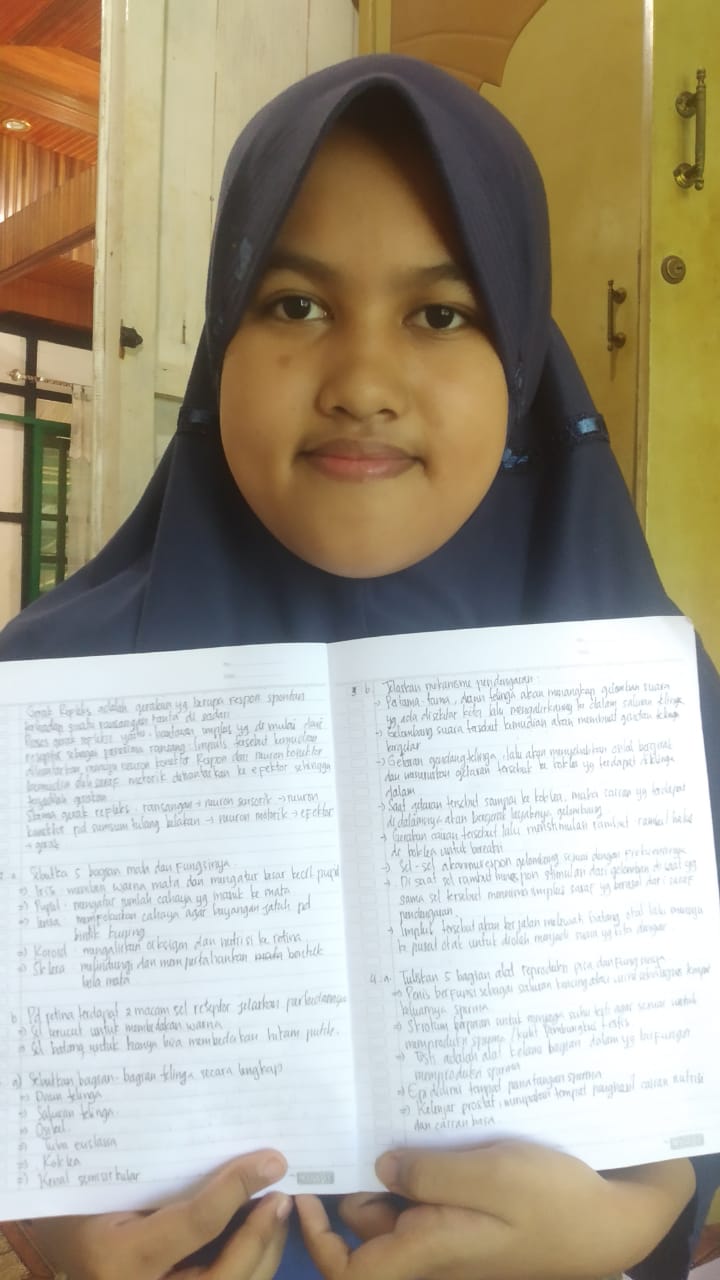 Gerak Refleks adalah gerakan yg berupa respon spontan
terhadap suatu rangsangan tanpa di sadari
Proses gerak refleks yaitu : hantaran impuls yg di mulai dari
reseptor sebagai penerima rangsang. Impuls tersebut kemudian
dihantarkan neuron konektor Respon dari neuron konektor
kemudian oleh saraf motorik dihantarkan ke efektor sehingga
terjadilah gerakan.
Skema gerak refleks : rangsangan → neuron sensorik → neuron
konektor pd sumsum tulang belakang → neuron motorik → efektor
→ gerak
a. Sebutkan 5 bagian mata dan fungsinya
=> Iris : memberi warna mata dan mengatur besar kecil pupil
=> Pupil : mengatur jumlah cahaya yg masuk ke mata
=> lensa : memfokuskan cahaya agar bayangan jatuh pd
bintik kuning
=> Koroid : mengalirkan oksigen dan nutrisi ke retina
=> Sklera : melindungi dan mempertahankan bentuk
bola mata
b Pd retina terdapat 2 macam sel reseptor jelaskan perbedaannya
=> Sel kerucut untuk membedakan warna
=> Sel batang untuk hanya bisa membedakan hitam putih.
a) Sebutkan bagian-bagian telinga secara lengkap
=> Daun telinga
=> Saluran telinga
=> Osikel
=> Tuba eustasia
=> Koklea
=> Kanal semisirkular
3 b. Jelaskan mekanisme pendengaran :
→ Pertama-tama, daun telinga akan menangkap gelombang suara
yg ada disekitar kita, lalu mengalirkannya ke dalam saluran telinga
→ Gelombang suara tersebut kemudian akan membuat gendang telinga
bergetar
→ Getaran gendang telinga, lalu akan menyebabkan osikel bergerak
dan meneruskan getaran tersebut ke koklea yg terdapat di telinga
dalam
→ Saat getaran tersebut sampai ke koklea, maka cairan yg terdapat
di dalamnya akan bergerak layaknya gelombang
→ Gerakan cairan tersebut lalu menstimulasi rambut-rambut halus
di koklea untuk bereaksi
→ Sel-sel akan merespon gelombang sesuai dengan frekuensinya
→ Di saat sel rambut merespon stimulan dari gelombang di saat yg
sama sel tersebut menerima impuls saraf yg berasal dari saraf
pendengaran
→ Impuls tersebut akan berjalan melewati batang otak lalu menuju
ke pusat otak untuk diolah menjadi suara yg kita dengar.
4. a. Tuliskan 5 bagian alat reproduksi pria dan fungsinya
=> Penis berfungsi sebagai saluran kencing atau urine sekaligus tempat
keluarnya sperma
=> Skrotum berperan untuk menjaga suhu testis agar sesuai untuk
memproduksi sperma / kulit pembungkus testis
=> Testis adalah alat kelamin bagian dalam yg berfungsi
memproduksi sperma
=> Epididimis tempat pematangan sperma
=> Kelenjar prostat, merupakan tempat penghasil cairan nutrisi
dan cairan basa